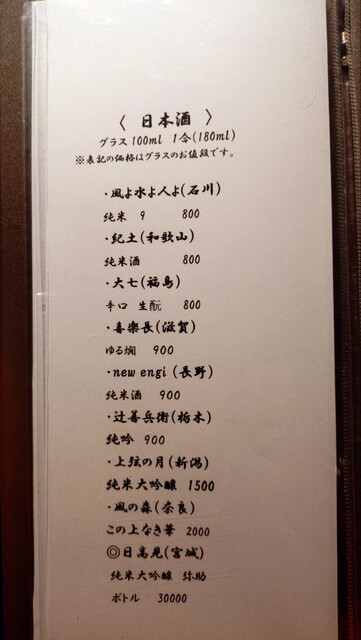 〈 日本酒 〉
グラス100ml 1合(180ml)
※表記の価格はグラスのお値段です。
・風よ水よ人よ(石川)
純米 9 800
・紀土(和歌山)
純米酒 800
・大七(福島)
辛口 生酛 800
・喜楽長(滋賀)
ゆる燗 900
・new engi (長野)
純米酒 900
・辻善兵衛(栃木)
純吟 900
・上弦の月(新潟)
純米大吟醸 1500
・風の森(奈良)
この上なき華 2000
◎日高見(宮城)
純米大吟醸 弥助
ボトル 30000